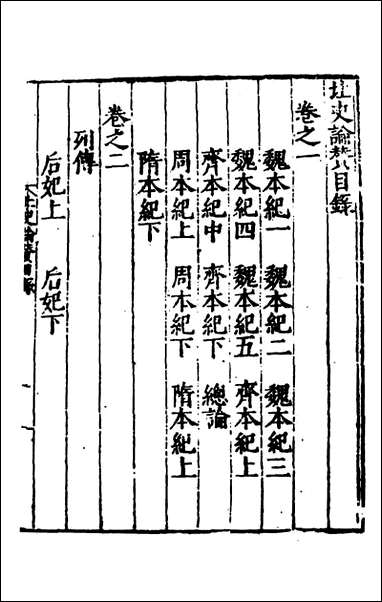 北史論贊目録
卷之一
魏本紀一 魏本紀二 魏本紀三
魏本紀四 魏本紀五 齊本紀上
齊本紀中 齊本紀下 總論
周本紀上 周本紀下 隋本紀上
隋本紀下
卷之二
列傳
后妃上 后妃下
北史論贊目録